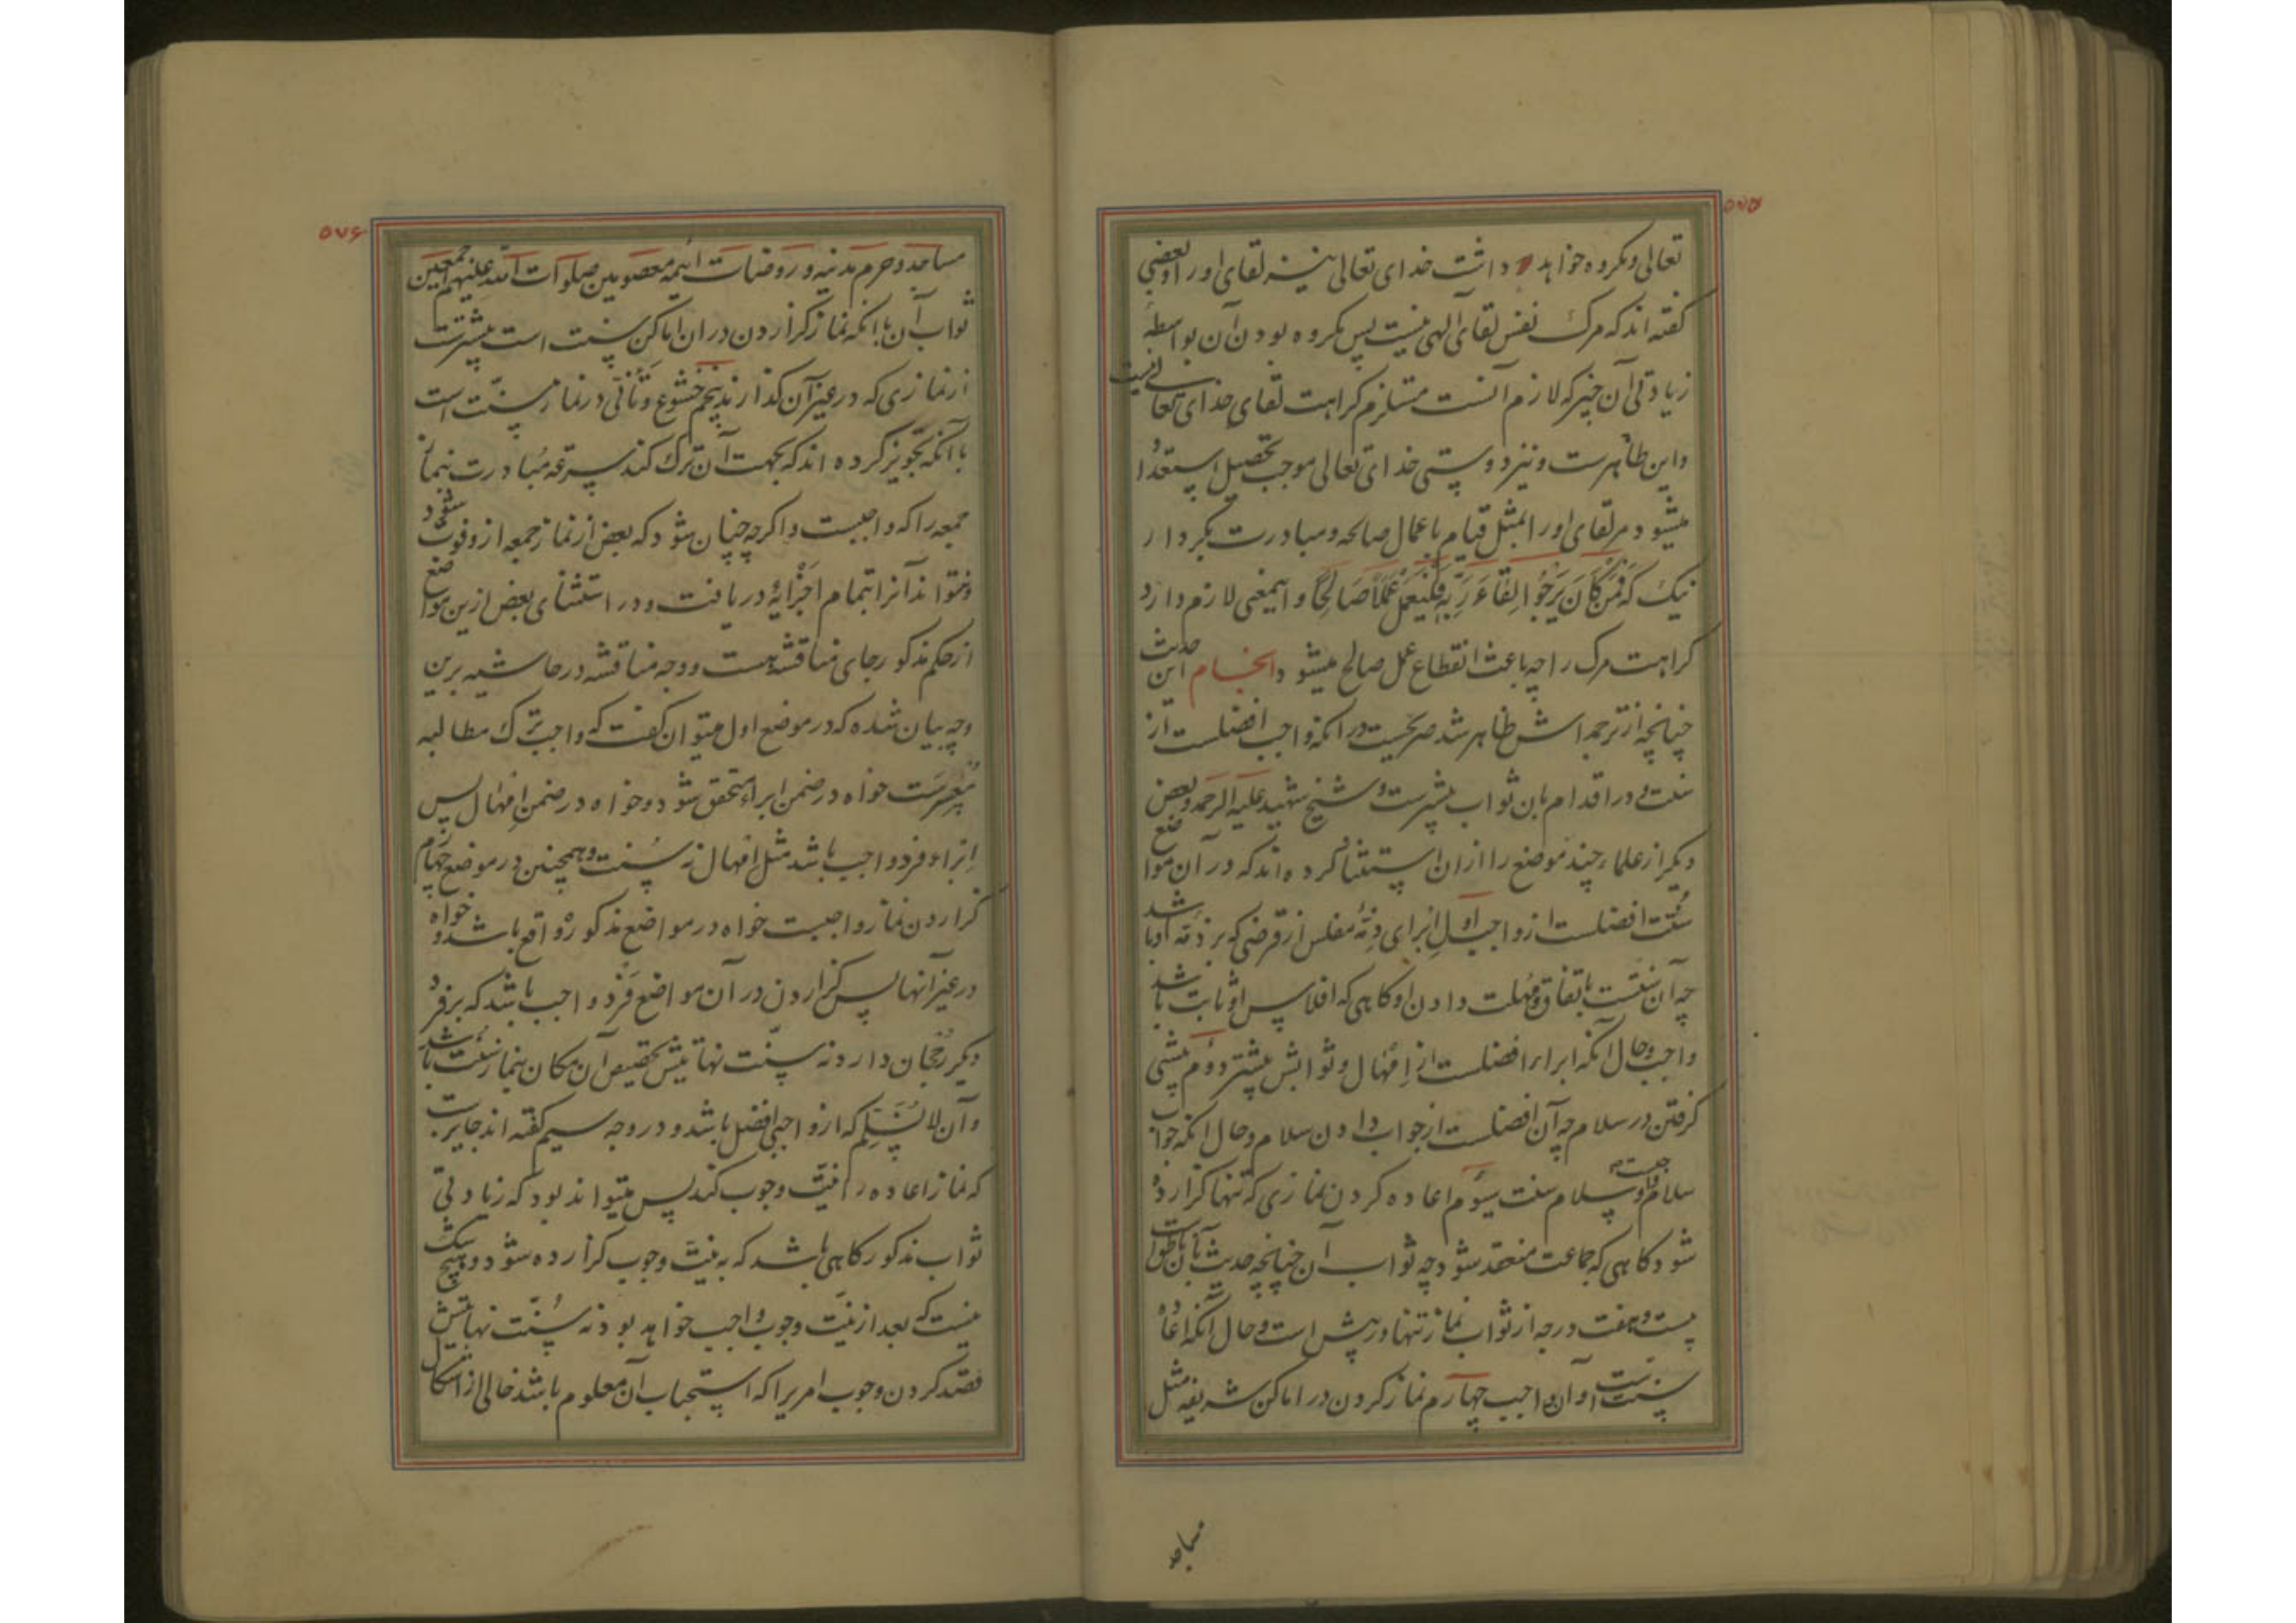 ۵۷۵
تعالی و مکروه خواهد داشت خدای تعالی نیز لقای او را و بعضی
گفته‌اند که مرگ نفس لقای الهی نیست پس مکروه بودن آن بواسطهٔ
زیادتی آن چیز که لازم آنست مستلزم کراهت لقای خدای تعالی نیست
و این ظاهرست و نیز دوستی خدای تعالی موجب تحصیل استعداد
میشود مر لقای او را بمثل قیام باعمال صالحه و مبادرت بکردار
نیک که فَمَن کَانَ یَرجُوا لِقَاءَ رَبِّهِ فَلیَعمَل عَمَلًا صَالِحًا و اینمعنی لازم دارد
کراهت مرگ را چه باعث انقطاع عمل صالح میشود انجام این حدیث
چنانچه از ترجمه‌اش ظاهر شد صریحست در انکه واجب افضلست از
سنت و در اقدام بان ثواب بیشترست و شیخ شهید علیه الرحمه و بعضی
دیگر از علماء چند موضع را از ان استثنا کرده‌اند که در آن مواضع
سُنت افضلست از واجب اول ابرای ذمّهٔ مفلس از قرضی که بر ذمّه او باشد
چه آن سنتست باتفاق و مهلت دادن او گاهی که افلاس او ثابت باشد
واجب و حال آنکه ابراء افضلست از اِمهال و ثوابش بیشتر دوم پیشی
گرفتن در سلام چه آن افضلست از جواب دادن سلام و حال انکه جواب
سلام واجبست و سلام سنت سیوم اعاده کردن نمازی که تنها گزارده
شود گاهی که جماعت منعقد شود چه ثواب آن چنانچه حدیث بآن ناطقست
بیست و هفت درجه از ثواب نماز تنها در پیش است و حال آنکه اعاده
سنت است و آن واجب چهارم نماز کردن در اماکن شریفه مثل
مساجد
۵۷۶
مساجد و حرم مدینه و روضات ائمهٔ معصومین صلوات الله علیهم اجمعین
ثواب آن با انکه نماز گزاردن در ان اماکن سنت است بیشترست
از نمازی که در غیر آن گذارند پنجم خشوع و تأنّی در نماز سنّت است
با آنکه تجویز کرده‌اند که بجهت آن ترک کند سرعة مُبادرت بنماز
جمعه را که واجبست و اگرچه چنان شود که بعض از نماز جمعه از و فوت شود
و نتواند آنرا بتمام اجزایهٔ دریافت و در استثنای بعض ازین مواضع
از حکم مذکور جای مناقشه هست و وجه مناقشه در حاشیه برین
وجه بیان شده که در موضع اول میتوان گفت که واجب ترک مطالبه
مُعسرست خواه در ضمن ابراء متحقق شود و خواه در ضمن اِمهال پس
اِبراء فرد واجب باشد مثل اِمهال نه سُنت و همچنین در موضع چهارم
گزاردن نماز واجبست خواه در مواضع مذکوره واقع باشد و خواه
در غیر آنها پس گزاردن در آن مواضع فرد واجب باشد که بر فرد
دیگر رُجحان دارد نه سنّت نهایتش تخصیص آن مکان بنماز سنّت باشد
و آن لا نُسَلِّم که از واجبی افضل باشد و در وجه سیم گفته‌اند جایزست
که نماز اعاده را نیّت وجوب کند پس میتواند بود که زیادتی
ثواب مذکور گاهی باشد که به نیّت وجوب گزارده شود و هیچ شک
نیست که بعد از نیّت وجوب واجب خواهد بود نه سُنّت نهایتش
قصد کردن وجوب امریرا که استحباب آن معلوم باشد خالی از اشکال